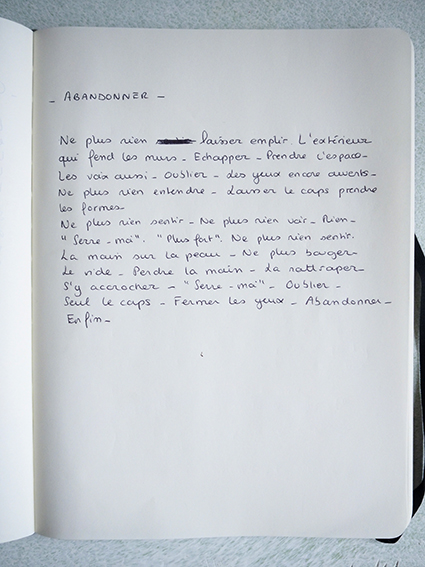 - ABANDONNER -
Ne plus rien laisser emplir. L'extérieur
qui fend les murs - Echapper - Prendre l'espace -
Les voix aussi - Oublier - Les yeux encore ouverts -
Ne plus rien entendre - Laisser le corps prendre
les formes -
Ne plus rien sentir - Ne plus rien voir - Rien -
"Serre-moi". "Plus fort". Ne plus rien sentir.
La main sur la peau - Ne plus bouger -
Le vide - Perdre la main - La rattraper
S'y accrocher - "Serre-moi" - Oublier -
Seul le corps - Fermer les yeux - Abandonner -
Enfin -